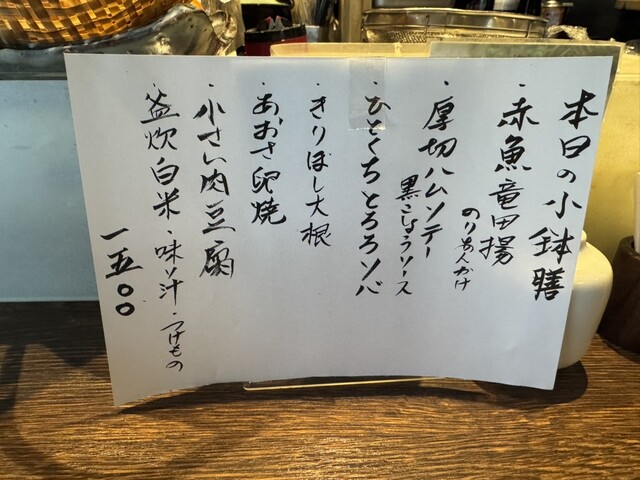 本日の小鉢膳
・赤魚竜田揚
のりあんかけ
・厚切ハムソテー
黒こしょうソース
・ひとくちとろろソバ
・きりぼし大根
・あおさ卵焼
・小さい肉豆腐
・釜炊白米・味ソ汁・つけもの
一五〇〇